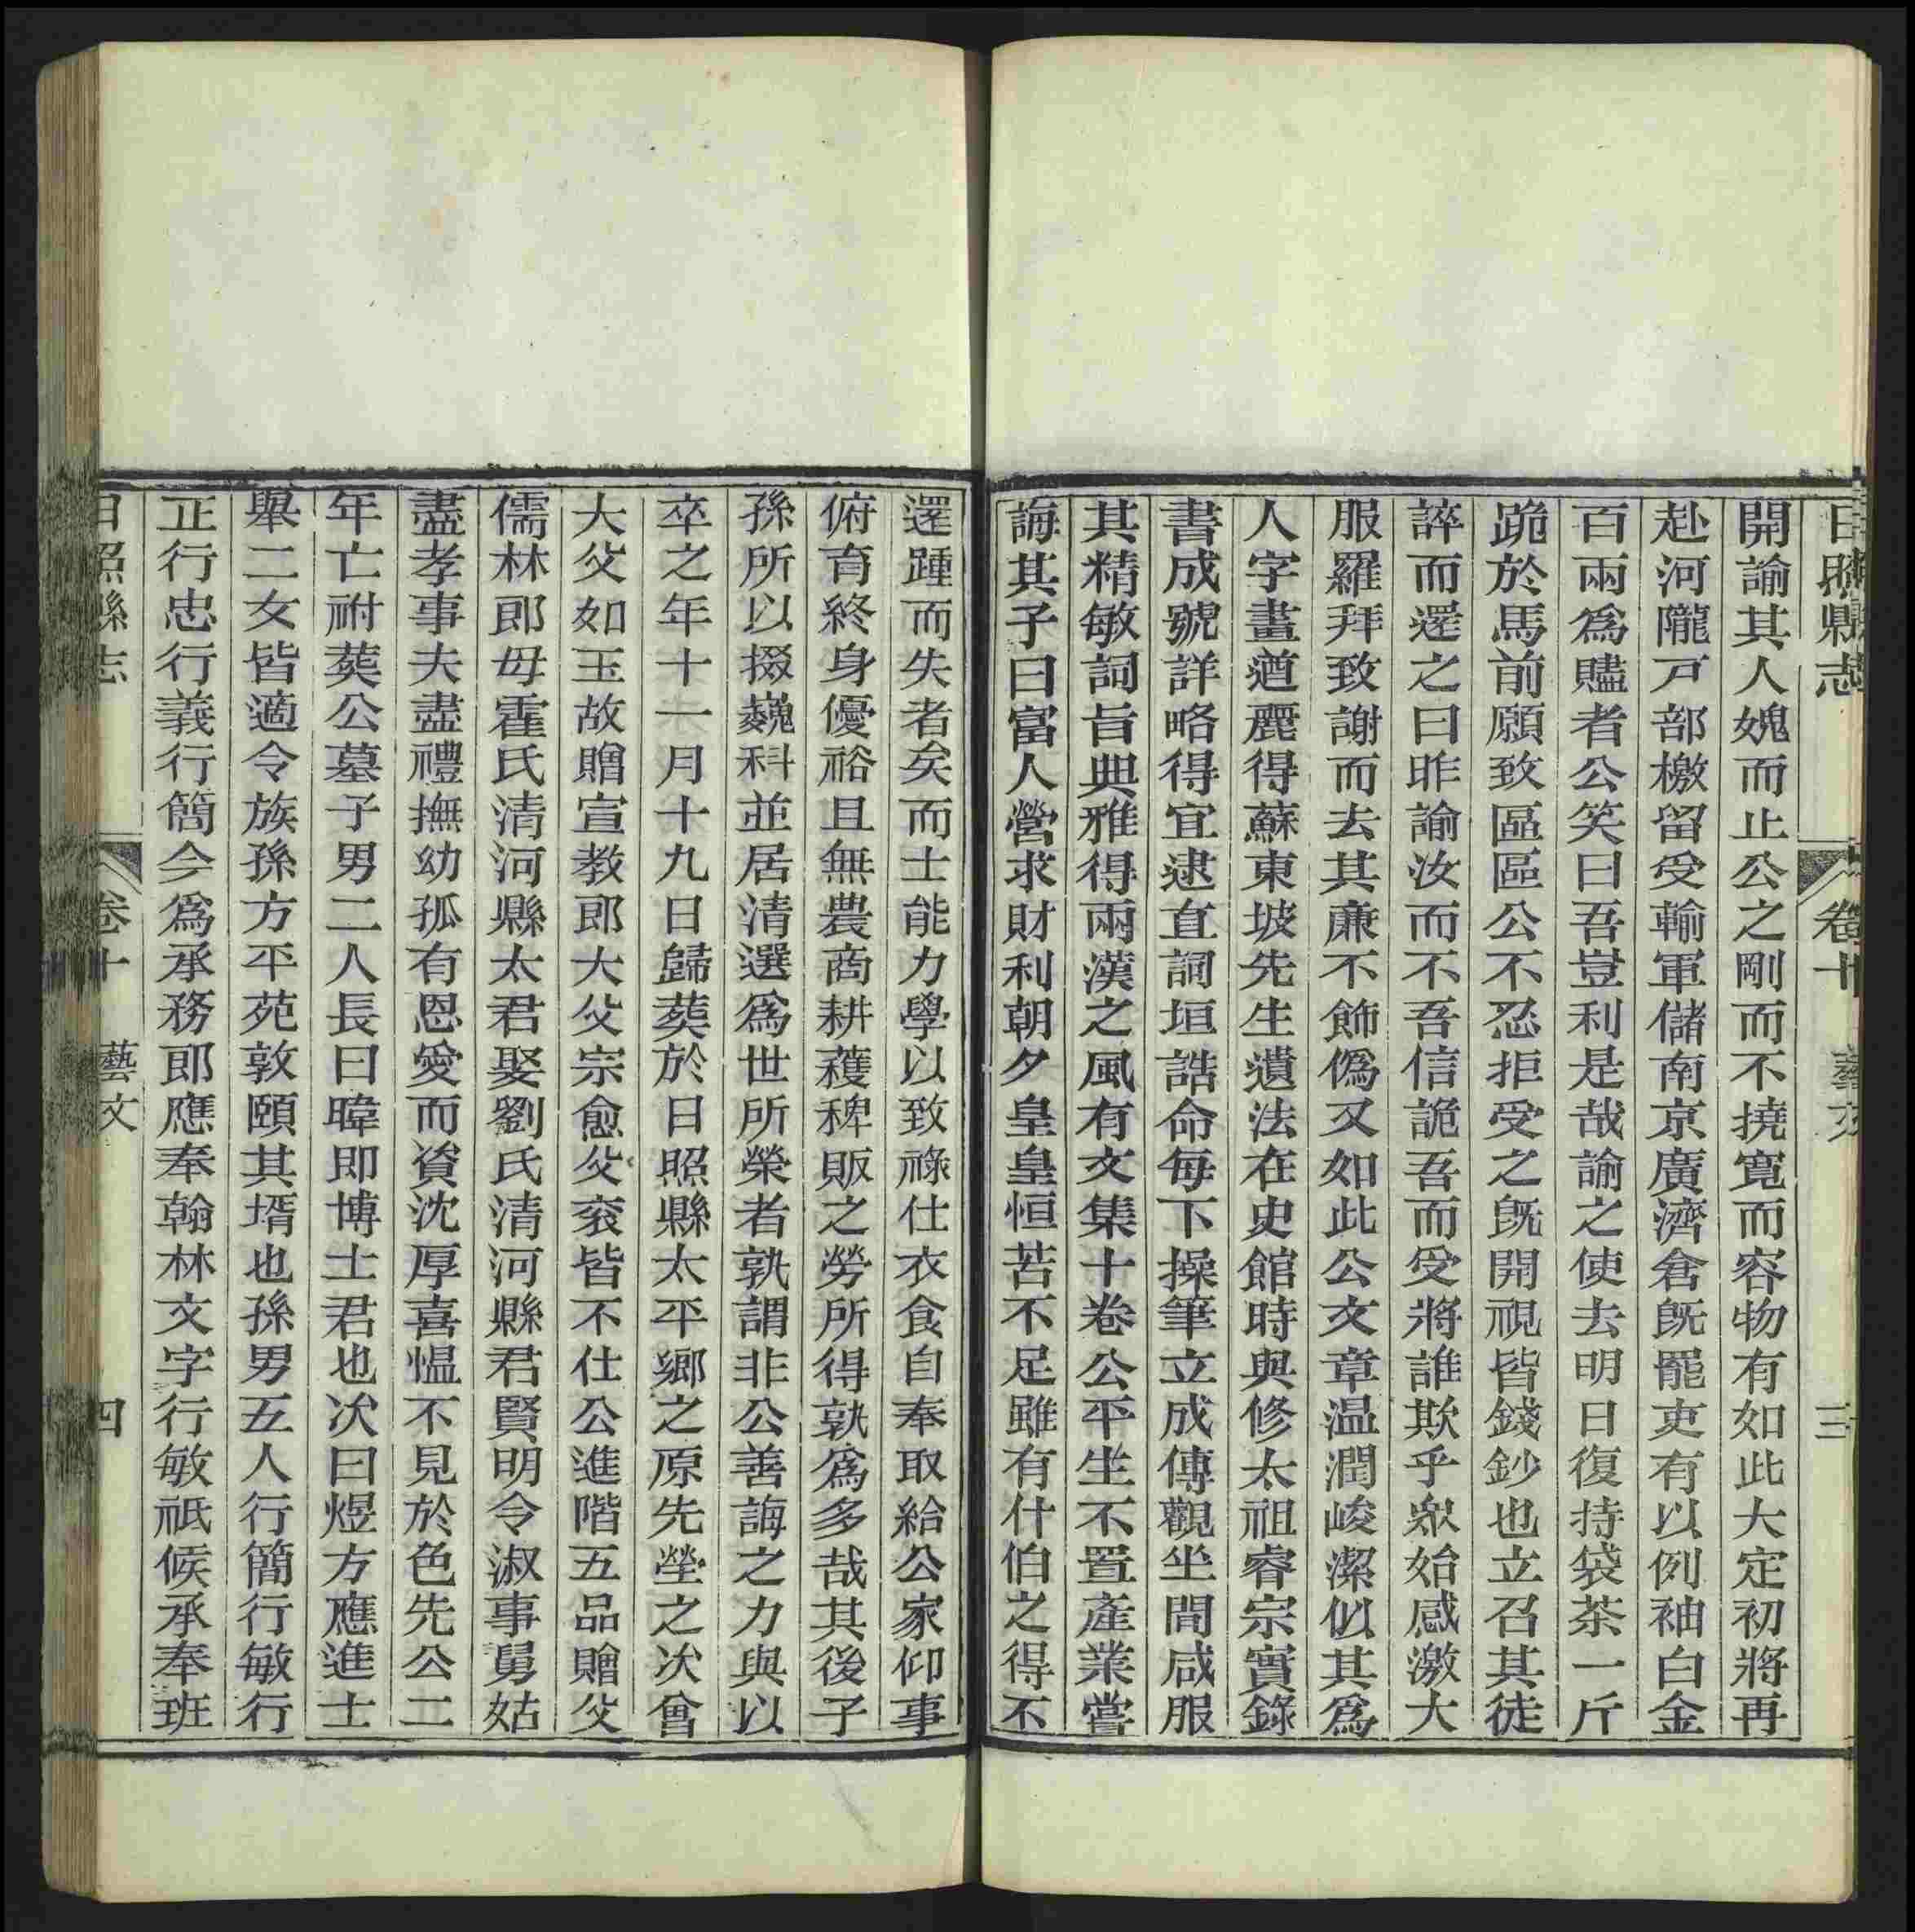 日照縣志 卷十 藝文 三
開諭其人媿而止公之剛而不撓寬而容物有如此大定初將再
赴河隴戸部檄留受輸軍儲南京廣濟倉旣罷吏有以例袖白金
百兩爲贐者公笑曰吾豈利是哉諭之使去明日復持袋茶一斤
跪於馬前願致區區公不忍拒受之旣開視皆錢鈔也立召其徒
誶而還之曰昨諭汝而不吾信詭吾而受將誰欺乎衆始感激大
服羅拜致謝而去其亷不飾僞又如此公文章温潤峻潔似其爲
人字畫遒麗得蘇東坡先生遺法在史館時與修太祖睿宗實錄
書成號詳略得宜逮直詞垣誥命每下操筆立成傳觀坐間咸服
其精敏詞旨典雅得兩漢之風有文集十卷公平生不置產業嘗
誨其子曰富人營求財利朝夕皇皇恒苦不足雖有什伯之得不
還踵而失者矣而士能力學以致祿仕衣食自奉取給公家仰事
俯育終身優裕且無農商耕穫稗販之勞所得孰爲多哉其後子
孫所以掇巍科並居清選爲世所榮者孰謂非公善誨之力與以
卒之年十一月十九日歸葬於日照縣太平鄉之原先塋之次曾
大父如玉故贈宣教郎大父宗愈父衮皆不仕公進階五品贈父
儒林郎母霍氏清河縣太君娶劉氏清河縣君賢明令淑事舅姑
盡孝事夫盡禮撫幼孤有恩愛而資沈厚喜愠不見於色先公二
年亡祔葬公墓子男二人長曰暐即博士君也次曰煜方應進士
舉二女皆適令族孫方平苑敦頤其壻也孫男五人行簡行敏行
正行忠行義行簡今爲承務郎應奉翰林文字行敏祗候承奉班
日照縣志 卷十 藝文 四